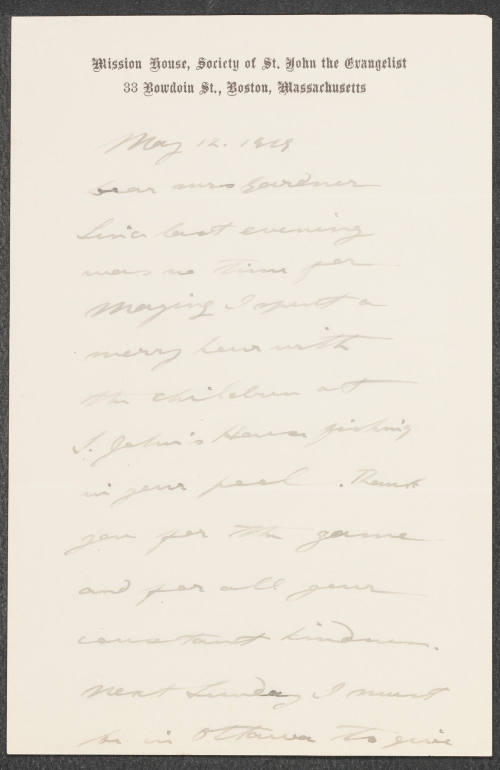 Mission House, Society of St. John the Evangelist
33 Bowdoin St., Boston, Massachusetts
May 12. 1919
Dear Mrs Gardner
Since last evening
was no time for
Maying I spent a
merry hour with
the children at
S. John's House fishing
in your pool. Thank
you for the game
and for all your
constant kindness.
Next Sunday I must
be in Ottawa to give